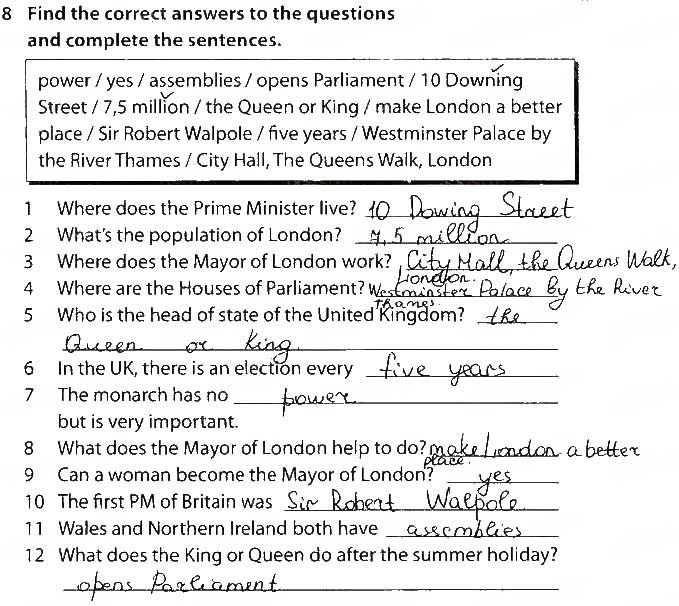 8 Find the correct answers to the questions
and complete the sentences.
power / yes / assemblies / opens Parliament / 10 Downing
Street / 7,5 million / the Queen or King / make London a better
place / Sir Robert Walpole / five years / Westminster Palace by
the River Thames / City Hall, The Queens Walk, London
1 Where does the Prime Minister live? 10 Dowing Street
2 What's the population of London? 7,5 million
3 Where does the Mayor of London work? City Hall, the Queens Walk,
London.
4 Where are the Houses of Parliament? Westminster Palace by the River
Thames.
5 Who is the head of state of the United Kingdom? the
Queen or King.
6 In the UK, there is an election every five years
7 The monarch has no power
but is very important.
8 What does the Mayor of London help to do? make London a better
place.
9 Can a woman become the Mayor of London? yes
10 The first PM of Britain was Sir Robert Walpole
11 Wales and Northern Ireland both have assemblies
12 What does the King or Queen do after the summer holiday?
opens Parliament